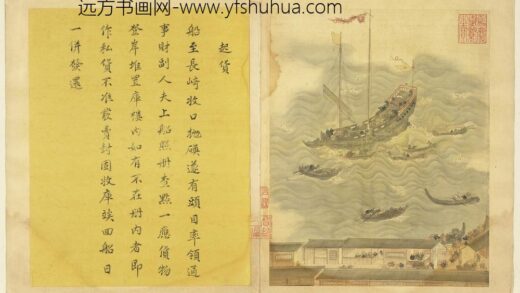 远方书画网-www.yfshuhua.com
起貨
船至長崎收口抛碇遂有頭目率領通
事財副人夫上船照册查點一應貨物
登岸堆置庫樓内如有不在册内者即
作私貨不准發賣封固收庫竢回船日
一併發還